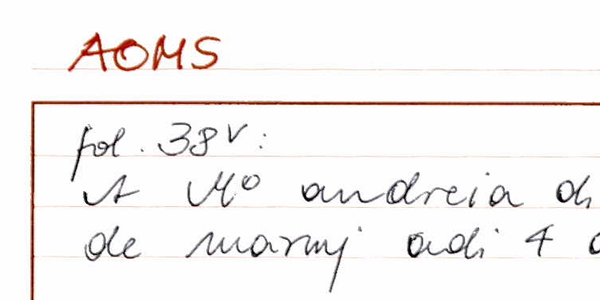 AOMS
fol. 38v:
A Mo andreia di
de marmj adi 4